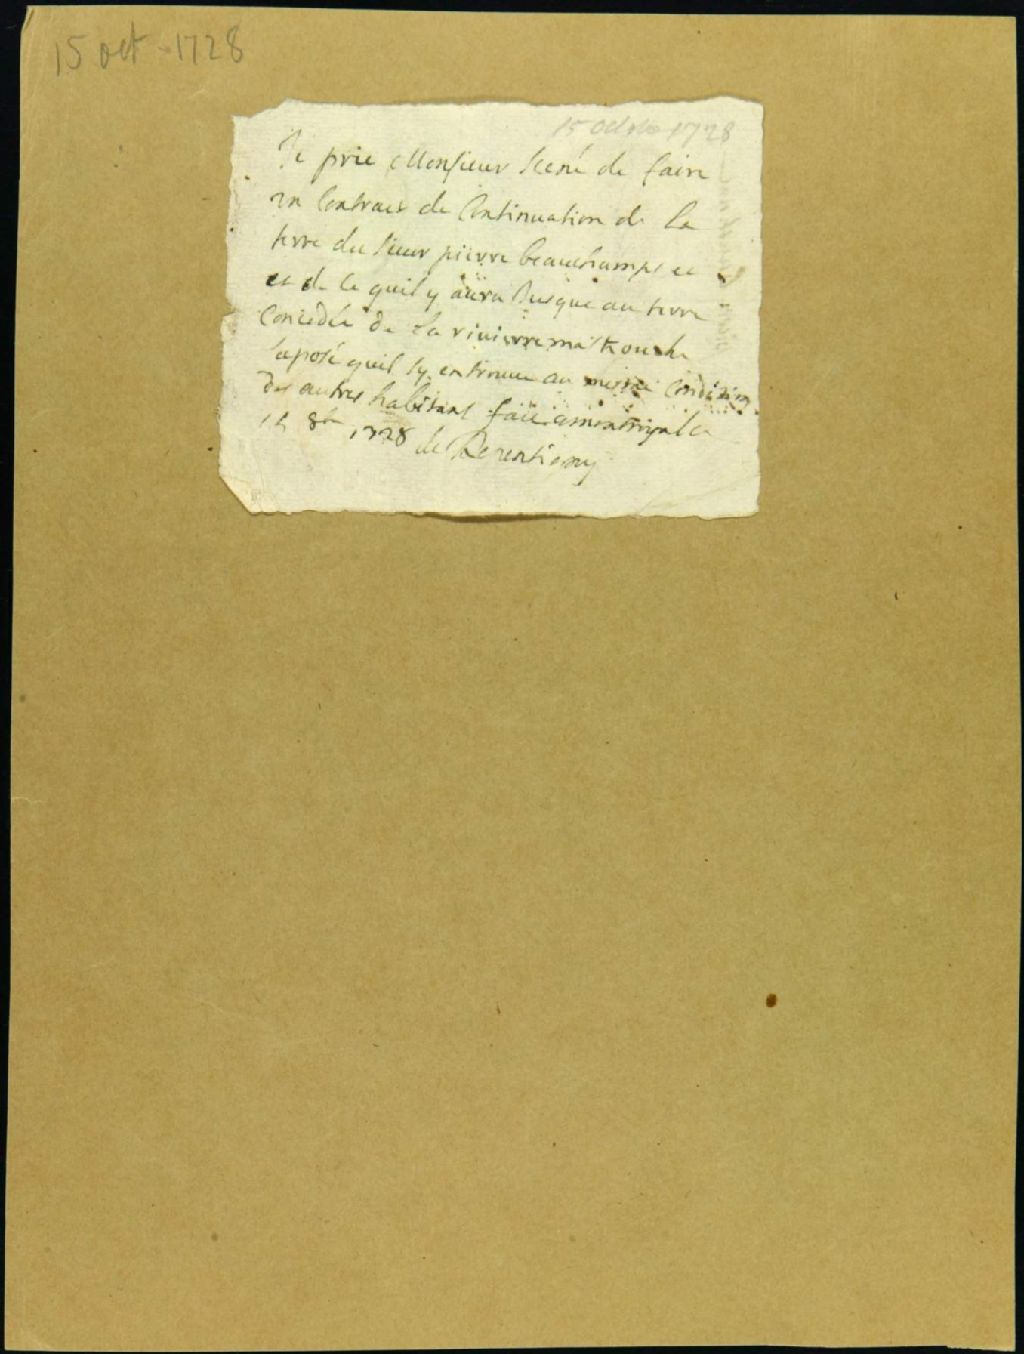 15 oct - 1728
15 Octobre 1728
Je prie Monsieur Senné de faire
un Contract de Continuation de la
terre du sieur pierre beauchamps et
et de ce quil y aura Jusque au terre
Concedée de la rivierre maskouche
suposé quil sy en trouve au mesme Condision
des autres habitans faict a montroyal ce
15 8bre 1728 de Repentigny